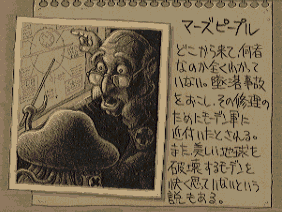 マーズピープル
どこから来て、何者
なのか全くわかって
いない。墜落事故
をおこし、その修理の
ためにモデン軍に
近付いたとされる。
また、美しい地球を
破壊するモデンを
快く思っていないという
説もある。